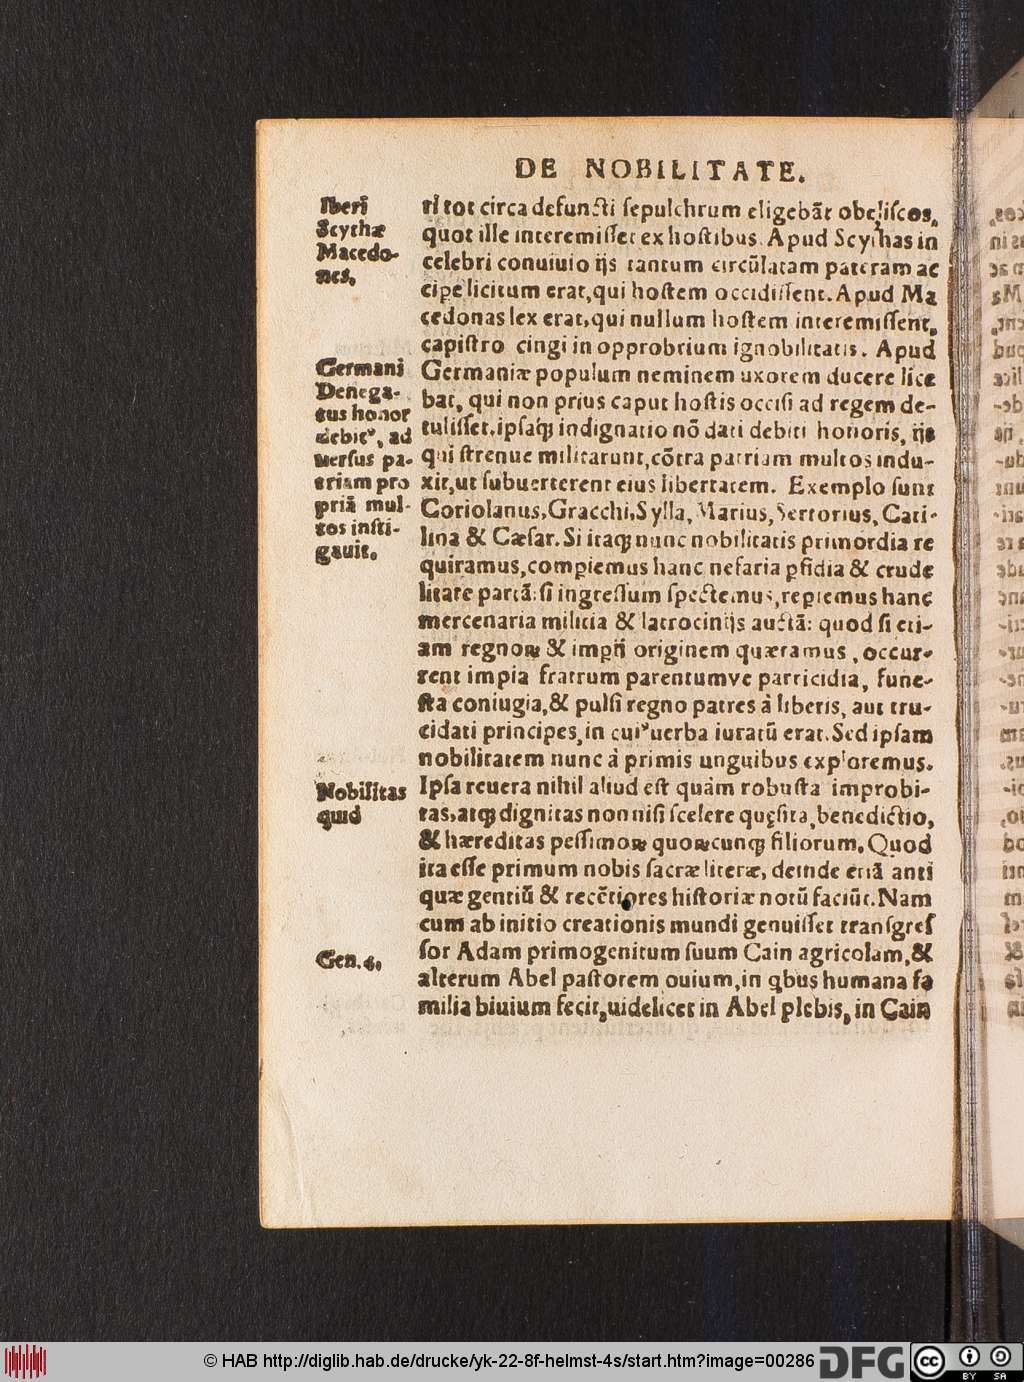 DE NOBILITATE.
Iberi
Scythæ
Macedo-
nes.
ri tot circa defuncti sepulchrum eligebāt obeliscos,
quot ille interemisset ex hostibus. Apud Scythas in
celebri conuiuio ijs tantum circūlatam pateram ac
cipe licitum erat, qui hostem occidissent. Apud Ma
cedonas lex erat, qui nullum hostem interemissent,
capistro cingi in opprobrium ignobilitatis. Apud
Germani
Denega-
tus honor
debitꝰ, ad
uersus pa-
triam pro
priā mul-
tos insti-
gauit.
Germaniæ populum neminem uxorem ducere lice
bat, qui non prius caput hostis occisi ad regem de-
tulisset, ipsaqꝫ indignatio nō dati debiti honoris, ijs
qui strenue militarunt, cōtra patriam multos indu-
xit, ut subuerterent eius libertatem. Exemplo sunt
Coriolanus, Gracchi, Sylla, Marius, Sertorius, Cati-
lina & Cæsar. Si itaqꝫ nunc nobilitatis primordia re
quiramus, compiemus hanc nefaria ꝑfidia & crude
litate partā: si ingressum spectemus, repiemus hanc
mercenaria militia & latrocinijs auctā: quod si eti-
am regnoꝝ & impij originem quæramus, occur-
rent impia fratrum parentumve parricidia, fune-
sta coniugia, & pulsi regno patres à liberis, aut tru-
cidati principes, in cuiꝰ uerba iuratū erat. Sed ipsam
nobilitatem nunc à primis unguibus exploremus.
Nobilitas
quid
Ipsa reuera nihil aliud est quàm robusta improbi-
tas, atqꝫ dignitas non nisi scelere quęsita, benedictio,
& hæreditas pessimoꝝ quoꝝcunqꝫ filiorum. Quod
ita esse primum nobis sacræ literæ, deinde etiā anti
quæ gentiū & recētiores historiæ notū faciūt. Nam
cum ab initio creationis mundi genuisset transgres
Gen. 4.
sor Adam primogenitum suum Cain agricolam, &
alterum Abel pastorem ouium, in qbus humana fa
milia biuium fecit, uidelicet in Abel plebis, in Cain
© HAB http://diglib.hab.de/drucke/yk-22-8f-helmst-4s/start.htm?image=00286
DFG
BY SA